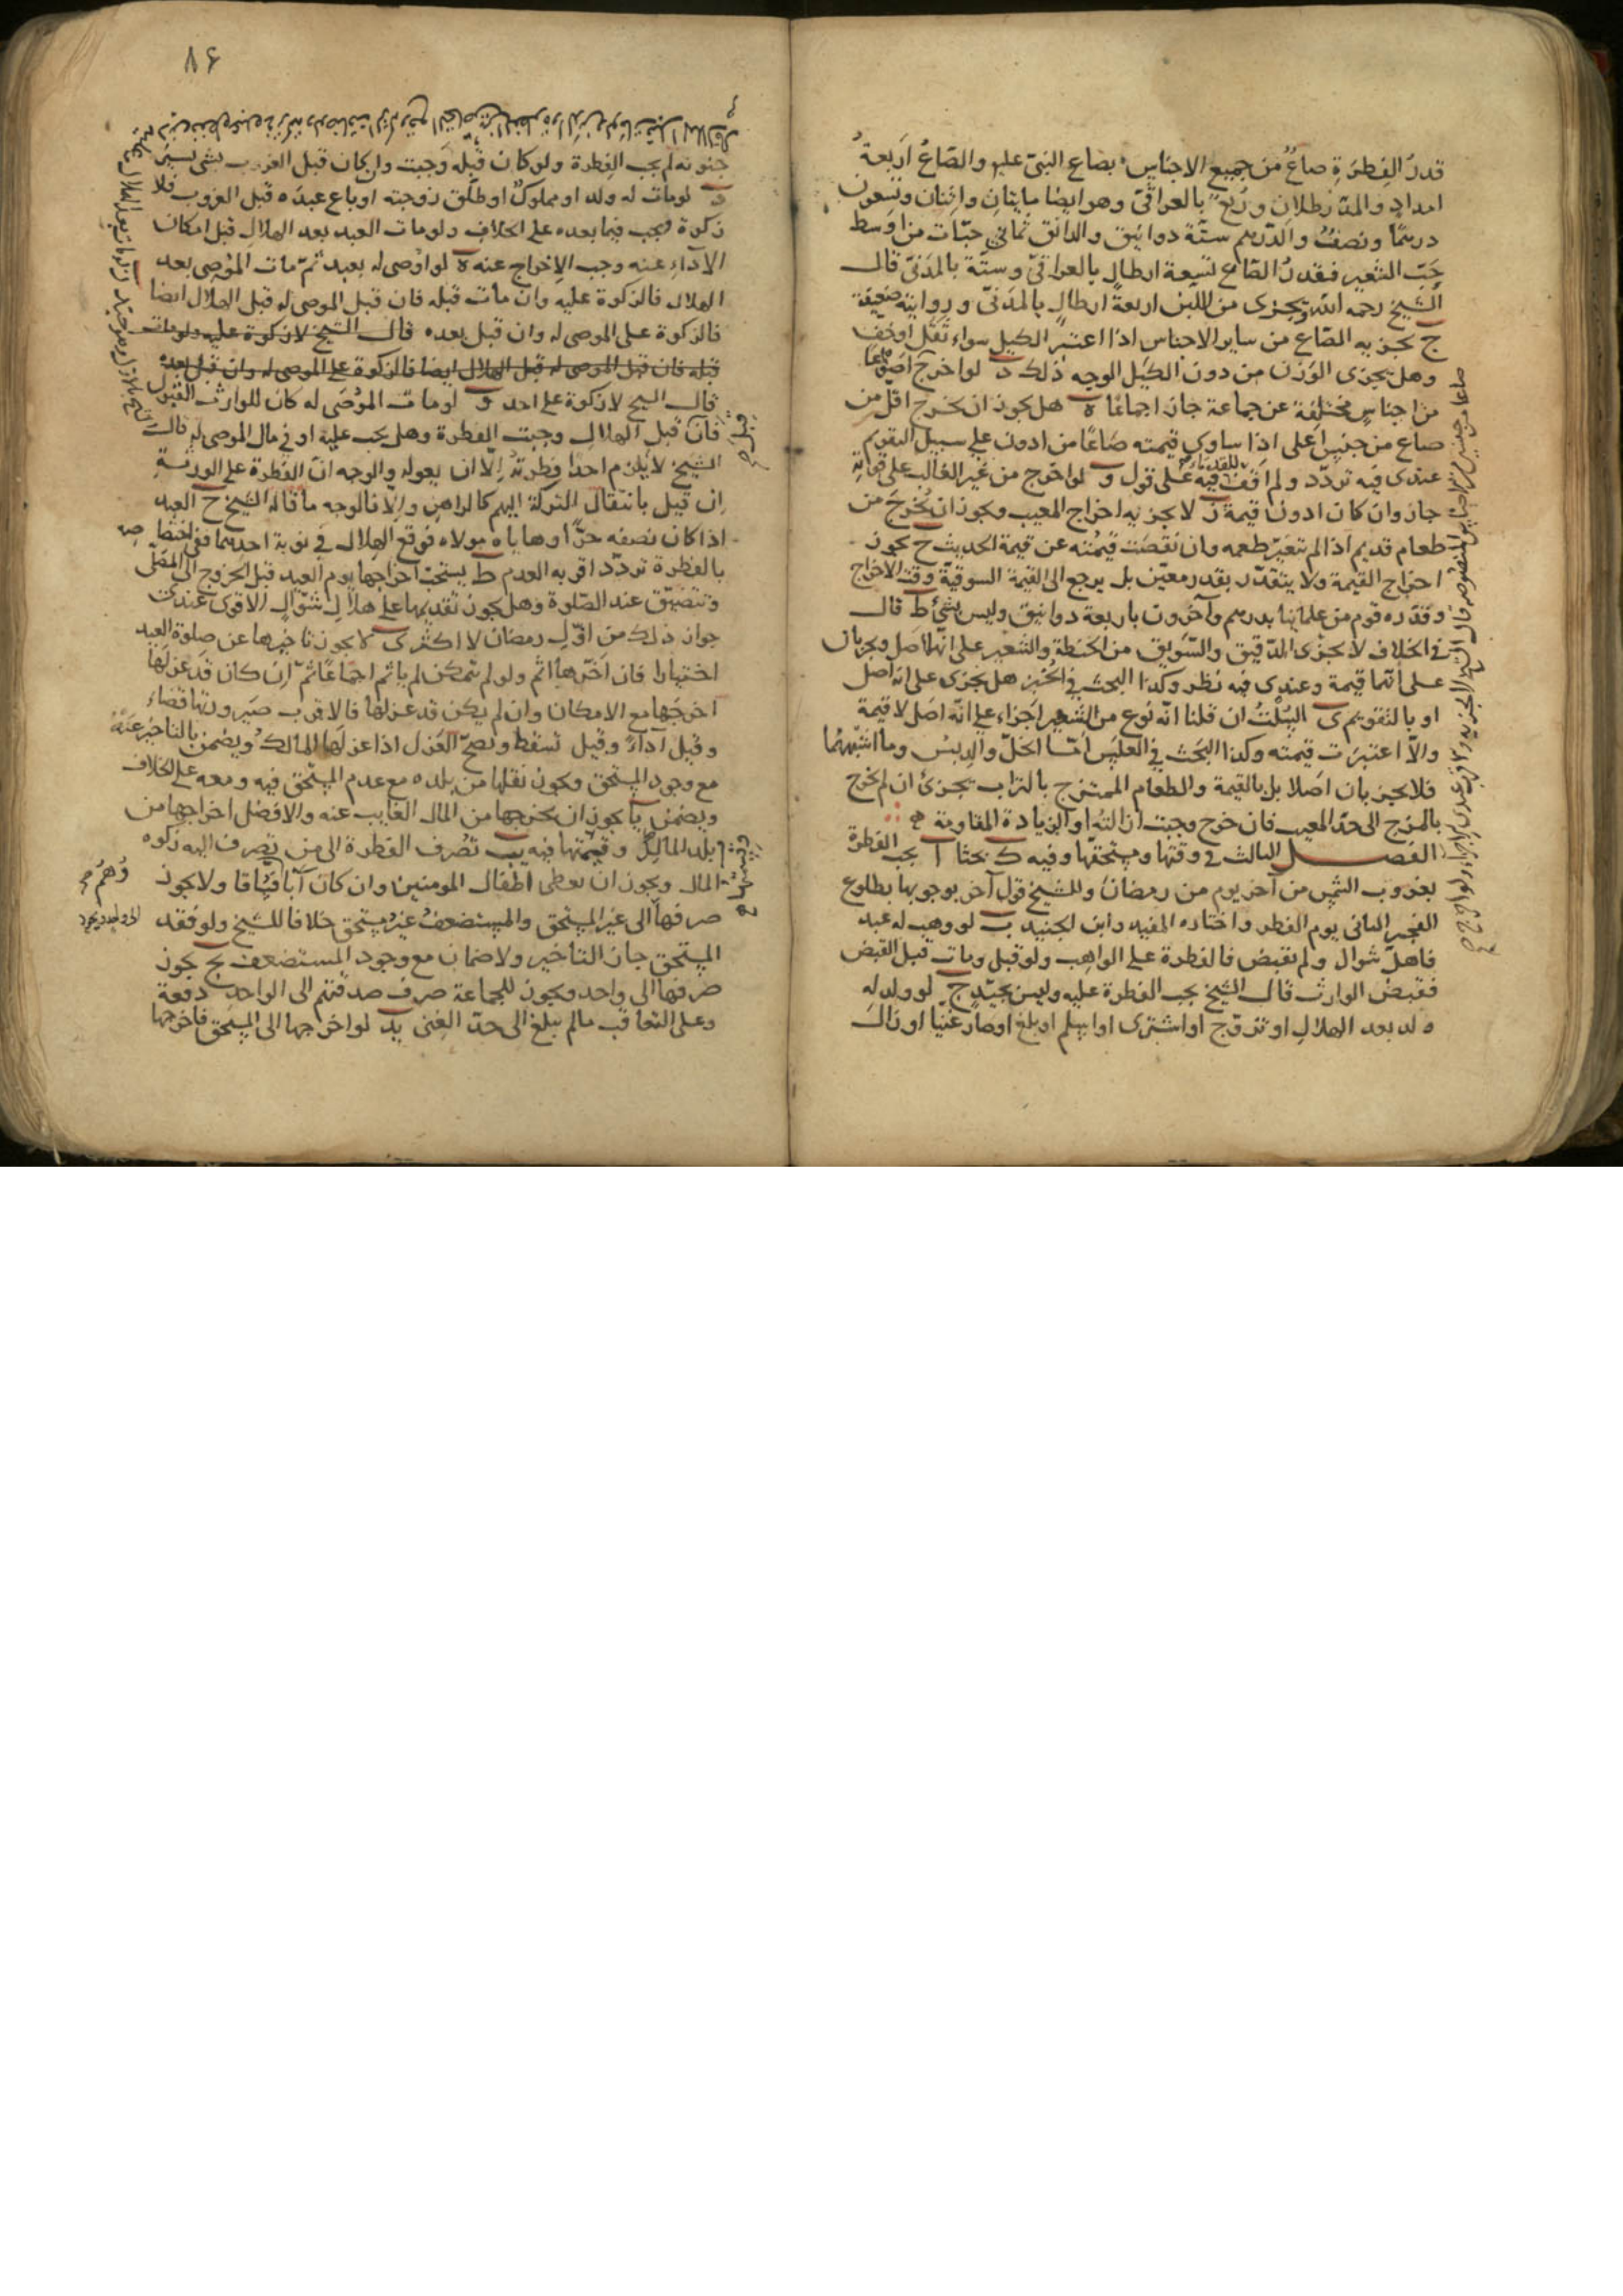 قدر الفطرة صاع من جميع الاجناس بصاع النبى عليه والصاع اربعة
امداد والمد رطلان وربع بالعراقى وهو ايضا مايتان واثنان وتسعون
درهما ونصف والدرهم ستة دوانيق والدانق ثمانى حبات من اوسط
حب الشعير فقدر الصاع تسعة ارطال بالعراقى وستة بالمدنى قال
الشيخ رحمه الله ويجزى من اللبن اربعة ارطال بالمدنى وروايته ضعيفة
ج يجزيه الصاع من ساير الاجناس اذا اعتبر الكيل سواء ثقل او خف
وهل يجزى الوزن من دون الكيل الوجه ذلك د لو اخرج اصواعا
من اجناس مختلفة عن جماعة جاز اجماعا ه هل يجوز ان يخرج اقل من
صاع من جنس اعلى اذا ساوى قيمته صاعا من ادون على سبيل التقويم
عندى فيه تردد ولم اقف فيه على قول و لو اخرج من غير الغالب على قوته
جاز وان كان ادون قيمة ز لا يجزيه اخراج المعيب ويجوز ان يخرج من
طعام قديم اذا لم يتغير طعمه وان نقصت قيمته عن قيمة الحديث ح يجوز
اخراج القيمة ولا يتقدر بقدر معين بل يرجع الى القيمة السوقية وقت الاخراج
وقدره قوم من علمائنا بدرهم وآخرون باربعة دوانيق وليس بشئ ط قال
فى الخلاف لا يجزى الدقيق والسويق من الحنطة والشعير على انهما اصل ويجزيان
على انهما قيمة وعندى فيه نظر وكذا البحث فى الخبز هل يجزى على انه اصل
او بالتقويم ى السلت ان قلنا انه نوع من الشعير اجزاء على انه اصل لا قيمة
والا اعتبرت قيمته وكذا البحث فى العلس اما الخل والدبس وما اشبههما
فلا يجزيان اصلا بل بالقيمة والطعام الممتزج بالتراب يجزئ ان لم يخرج
بالمزج الى حد المعيب فان خرج وجبت ازالته او الزيادة المقاومة
الفصل الثالث فى وقتها ومستحقها وفيه ك بحثا ا يجب الفطرة
بغروب الشمس من آخر يوم من رمضان وللشيخ قول آخر بوجوبها بطلوع
الفجر الثانى يوم الفطر واختاره المفيد وابن الجنيد ب لو وهب له عبد
فاهل شوال ولم يقبض فالفطرة على الواهب ولو قبل ومات قبل القبض
فقبض الوارث قال الشيخ يجب الفطرة عليه وليس بجيد ج لو ولد له
ولد بعد الهلال او تزوج او اشترى او اسلم او بلغ او صار غنيا او زال
٨٤
جنونه لم يجب الفطرة ولو كان قبله وجبت وان كان قبل الغروب بشئ يسير
د لو مات له ولد او مملوك او طلق زوجته او باع عبده قبل الغروب فلا
زكوة ويجب فيما بعده على الخلاف ولو مات العبد بعد الهلال قبل امكان
الآداء عنه وجب الاخراج عنه ه لو اوصى له بعبد ثم مات الموصى بعد
الهلال فالزكوة عليه وان مات قبله فان قبل الموصى له قبل الهلال ايضا
فالزكوة على الموصى له وان قبل بعده قال الشيخ لا زكوة عليه ولو مات
قبله فان قبل الموصى له قبل الهلال ايضا فالزكوة على الموصى له وان قبل بعده
قال الشيخ لا زكوة على احد و لو مات الموصى له كان للوارث القبول
فان قبل الهلال وجبت الفطرة وهل يجب عليه او فى مال الموصى له قال
الشيخ لا يلزم احدا فطرته الا ان يعوله والوجه ان الفطرة على الورثة
ان قيل بانتقال التركة اليهم كالراهن والا فالوجه ما قاله الشيخ ح العبد
اذا كان نصفه حرا وهاياه مولاه فوقع الهلال فى نوبة احدهما ففى اختصاصه
بالفطرة تردد اقربه العدم ط يستحب اخراجها يوم العيد قبل الخروج الى المصلى
وتتضيق عند الصلوة وهل يجوز تقديمها على هلال شوال الاقوى عندى
جواز ذلك من اول رمضان لا اكثر ى لا يجوز تاخيرها عن صلوة العيد
اختيارا فان اخرها اثم ولو لم يتمكن لم ياثم اجماعا ثم ان كان قد عزلها
اخرجها مع الامكان وان لم يكن قد عزلها فالاقرب صيرورتها قضاء
وقيل آداء وقيل تسقط ويصح العزل اذا عزلها المالك ويضمن بالتاخير عنه
مع وجود المستحق ويجوز نقلها من بلده مع عدم المستحق فيه ومعه على الخلاف
ويضمن يا يجوز ان يخرجها من المال الغايب عنه والافضل اخراجها من
بلد المالك وقيمتها فيه يب تصرف الفطرة الى من تصرف اليه زكوة
المال ويجوز ان يعطى اطفال المومنين وان كان آباؤهم فساقا ولا يجوز
صرفها الى غير المستحق والمستضعف غير مستحق خلافا للشيخ ولو فقد
المستحق جاز التاخير ولا ضمان مع وجود المستضعف يج يجوز
صرفها الى واحد ويجوز للجماعة صرف صدقتهم الى الواحد دفعة
وعلى التعاقب ما لم يبلغ الى حد الغنى يد لو اخرجها الى المستحق فاخرجها